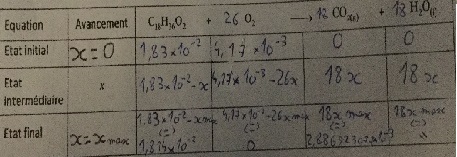 Equation Avancement C₁₈H₃₆O₂ + 26 O₂ → 18 CO₂(g) + 18 H₂O(l)
Etat initial x=0 1,83×10⁻² 4,17×10⁻³ 0 0
Etat intermédiaire x 1,83×10⁻²-x 4,17×10⁻³-26x 18x 18x
Etat final x=x max 1.83×10⁻²-x max 4,17×10⁻³-26x max 18x max 18x max
(=) (=) (=) (=)
1,814×10⁻² 0 "